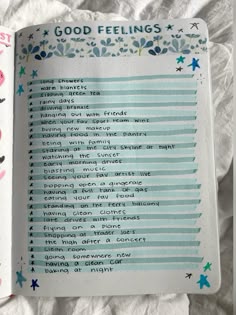 GOOD FEELINGS
long showers
warm blankets
sipping green tea
rainy days
driving blankie
hanging out with friends
when your fav sport team wins
buying new makeup
having food in the pantry
being with family
staring at the city skyline at night
watching the sunset
early morning drives
blasting music
seeing your fav artist live
popping open a gingerale
having a full tank of gas
eating your fav food
standing on the ferry balcony
having clean clothes
late drives with friends
flying on a plane
shopping at trader joe's
the high after a concert
clean room
going somewhere new
having a clean car
baking at night